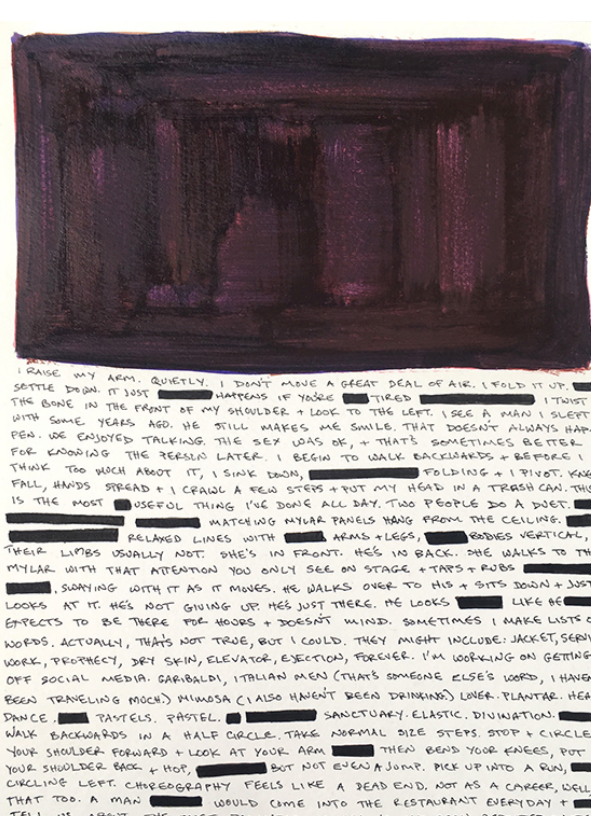 I RAISE MY ARM. QUIETLY. I DON'T MOVE A GREAT DEAL OF AIR. I FOLD IT UP.
SETTLE DOWN. IT JUST HAPPENS IF YOU'RE TIRED I TWIST
THE BONE IN THE FRONT OF MY SHOULDER + LOOK TO THE LEFT. I SEE A MAN I SLEPT
WITH SOME YEARS AGO. HE STILL MAKES ME SMILE. THAT DOESN'T ALWAYS HAP-
PEN. WE ENJOYED TALKING. THE SEX WAS OK, + THAT'S SOMETIMES BETTER
FOR KNOWING THE PERSON LATER. I BEGIN TO WALK BACKWARDS + BEFORE I
THINK TOO MUCH ABOUT IT, I SINK DOWN, FOLDING + I PIVOT. KNE
FALL, HANDS SPREAD + I CRAWL A FEW STEPS + PUT MY HEAD IN A TRASH CAN. THIS
IS THE MOST USEFUL THING I'VE DONE ALL DAY. TWO PEOPLE DO A DUET.
MATCHING MYLAR PANELS HANG FROM THE CEILING.
RELAXED LINES WITH ARMS + LEGS, BODIES VERTICAL,
THEIR LIMBS USUALLY NOT. SHE'S IN FRONT. HE'S IN BACK. SHE WALKS TO TH
MYLAR WITH THAT ATTENTION YOU ONLY SEE ON STAGE + TAPS + RUBS
, SWAYING WITH IT AS IT MOVES. HE WALKS OVER TO HIS + SITS DOWN + JUST
LOOKS AT IT. HE'S NOT GIVING UP. HE'S JUST THERE. HE LOOKS LIKE HE
EXPECTS TO BE THERE FOR HOURS + DOESN'T MIND. SOMETIMES I MAKE LISTS O
WORDS. ACTUALLY, THAT'S NOT TRUE, BUT I COULD. THEY MIGHT INCLUDE: JACKET, SERVI
WORK, PROPHECY, DRY SKIN, ELEVATOR, EJECTION, FOREVER. I'M WORKING ON GETTING
OFF SOCIAL MEDIA. GARIBALDI, ITALIAN MEN (THAT'S SOMEONE ELSE'S WORD, I HAVEN
BEEN TRAVELING MUCH.) MIMOSA (I ALSO HAVEN'T BEEN DRINKING.) LOVER. PLANTAR. HEA
DANCE. PASTELS. PASTEL. SANCTUARY. ELASTIC. DIVINATION.
WALK BACKWARDS IN A HALF CIRCLE. TAKE NORMAL SIZE STEPS. STOP + CIRCLE
YOUR SHOULDER FORWARD + LOOK AT YOUR ARM THEN BEND YOUR KNEES, PUT
YOUR SHOULDER BACK + HOP, BUT NOT EVEN A JUMP. PICK UP INTO A RUN,
CIRCLING LEFT. CHOREOGRAPHY FEELS LIKE A DEAD END. NOT AS A CAREER, WELL,
THAT TOO. A MAN WOULD COME INTO THE RESTAURANT EVERYDAY +